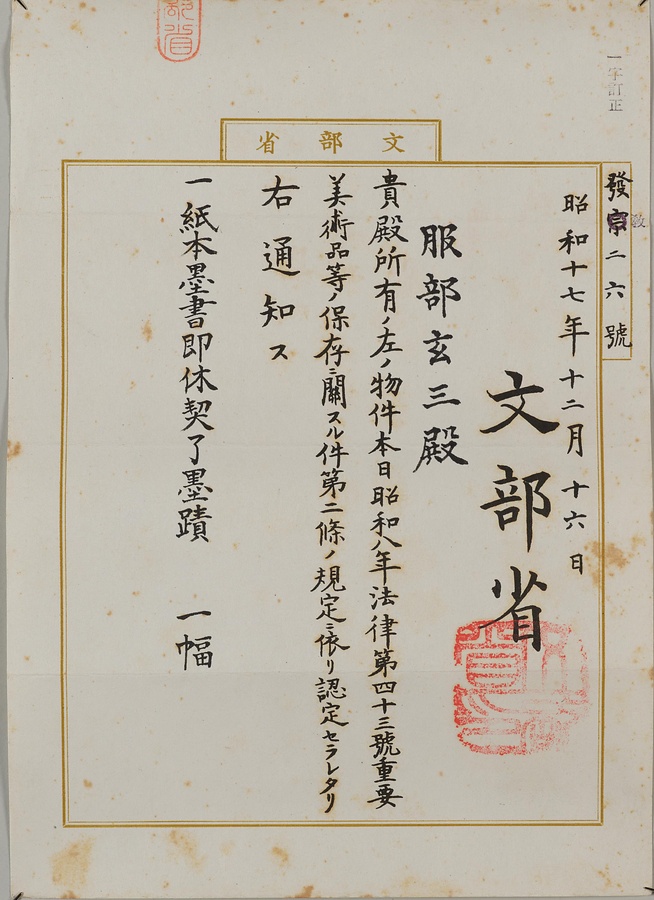 一字訂正
文部省
發宗教二六號
昭和十七年十二月十六日
文部省
服部玄三殿
貴殿所有ノ左ノ物件本日昭和八年法律第四十三號重要
美術品等ノ保存ニ關スル件第二條ノ規定ニ依リ認定セラレタリ
右通知ス
一紙本墨書即休契了墨蹟 一幅